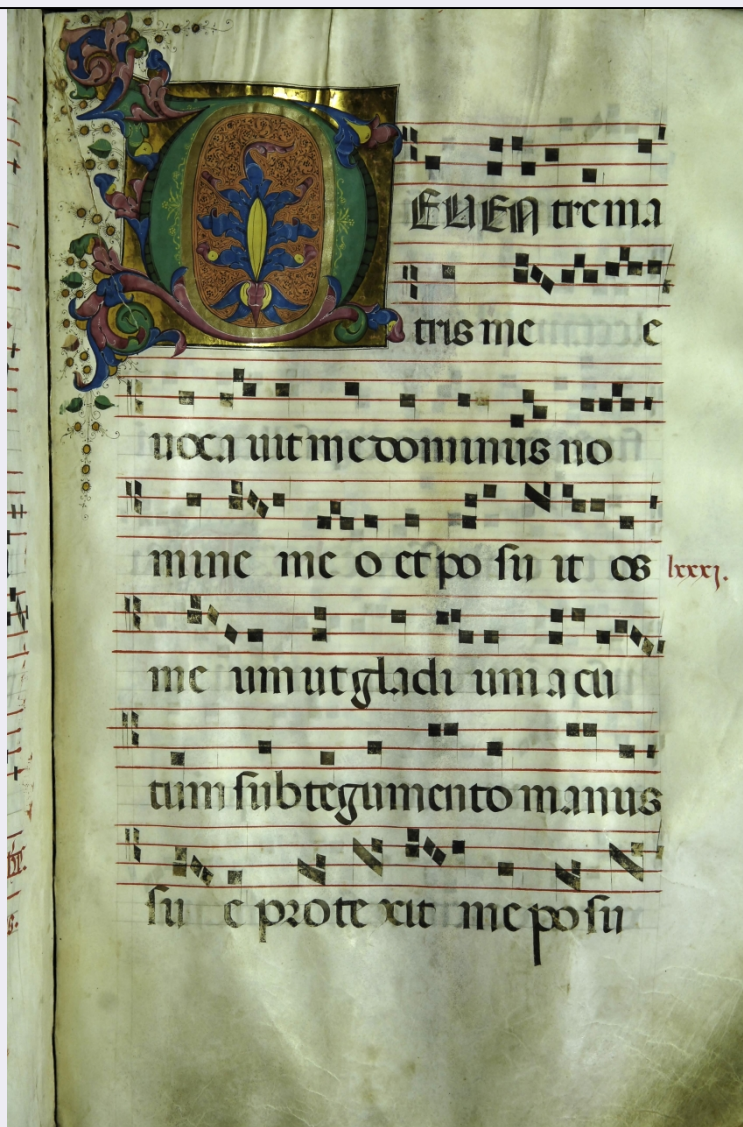 DEUEN tre ma
tris me e
uoca uit me dominus no
mine me o et po su it os
lxxxj.
me um ut gladi um a cu
tum sub tegumento manus
su e prote xit me po su